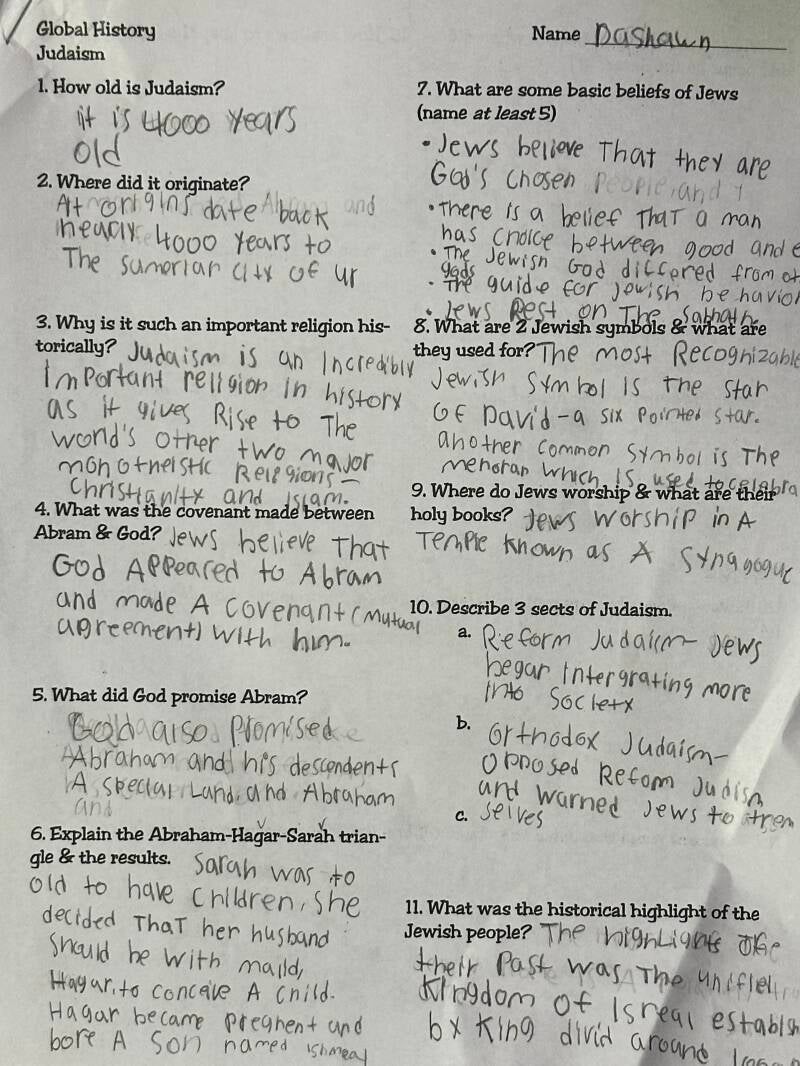 Global History
Judaism
Name Dashawn
1. How old is Judaism?
it is 4000 years
old
2. Where did it originate?
At origins date back
nearly 4000 years to
The sumerian city of ur
3. Why is it such an important religion his-
torically? Judaism is an Incredibly
Important religion in history
as it gives Rise to The
world's other two major
monotheistic Religions—
Christianity and Islam.
4. What was the covenant made between
Abram & God? Jews believe That
God Appeared to Abram
and made A covenant (Mutual
agreement) with him.
5. What did God promise Abram?
God also promised
Abraham and his descendents
A special Land, and Abraham
and
6. Explain the Abraham-Hagar-Sarah trian-
gle & the results. Sarah was to
old to have children, She
decided That her husband
should be with maild,
Hagar, to conceive A child.
Hagar became pregnent and
bore A Son named ishmeal
7. What are some basic beliefs of Jews
(name at least 5)
• Jews believe That they are
God's chosen people, and
• There is a belief That a man
has choice between good and e
• The Jewish God differed from ot
gods
• The guide for Jewish behavior
• Jews Rest on The Sabbath
8. What are 2 Jewish symbols & what are
they used for? The most Recognizable
Jewish Symbol Is the star
Of David-a six pointed star.
another common symbol is The
menorah which is used to celebra
9. Where do Jews worship & what are their
holy books? Jews worship in A
Temple known as A Synagogue
10. Describe 3 sects of Judaism.
a. Reform Judaism— Jews
began Intergrating more
into Society
b. Orthodox Judaism—
Opposed Refom Judism
and warned Jews to them
c. selves
11. What was the historical highlight of the
Jewish people? The highlight Of
their Past was The unified
Kingdom of Isreal establish
by King divid around